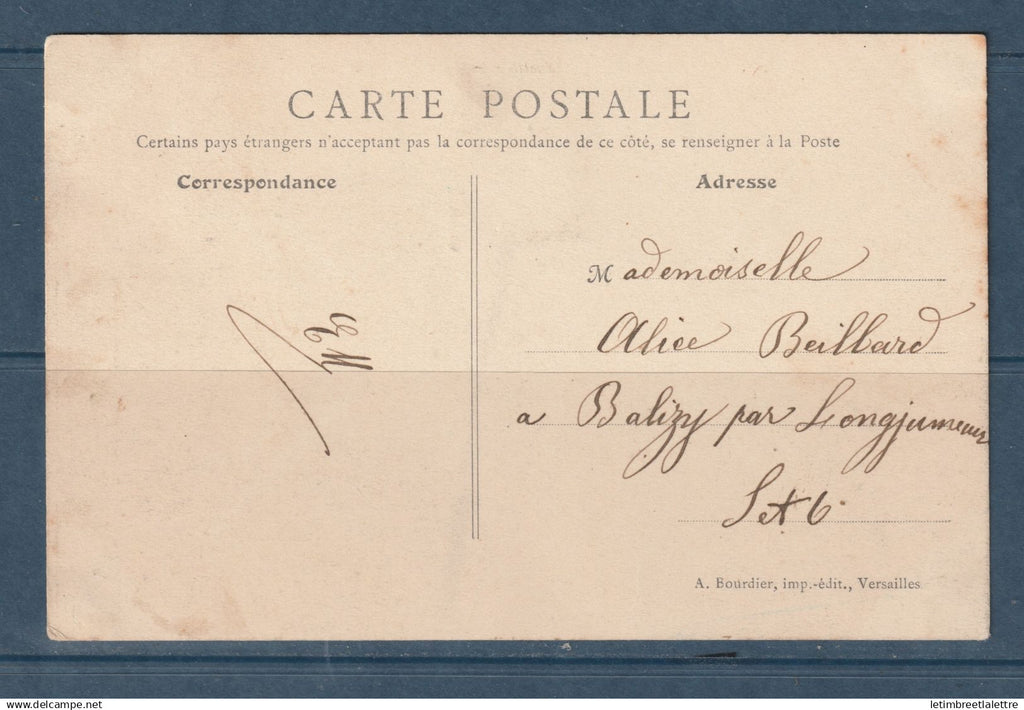 CARTE POSTALE
Certains pays étrangers n'acceptant pas la correspondance de ce côté, se renseigner à la Poste
Correspondance
Adresse
Mademoiselle
Alice Beillard
a Balizy par Longjumeau
S et O.
A. Bourdier, imp.-édit., Versailles
delcampe.net
letimbreetlalettre